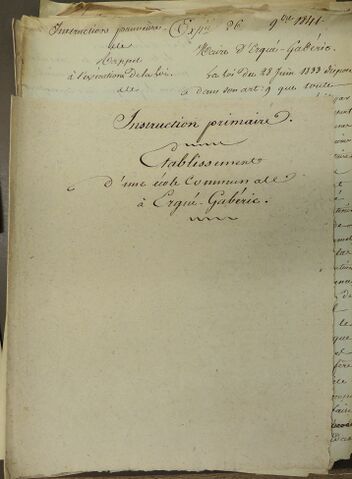 Instruction primaire
Expié 26 9bre 1841.
Maire d'Ergué-Gabéric.
Rappel
à l'exécution de la loi.
La loi du 28 Juin 1833 dispose
dans son art: 9 que toute
Instruction primaire.
Etablissement
d'une école communale
à Ergué-Gabéric.
par
le
que